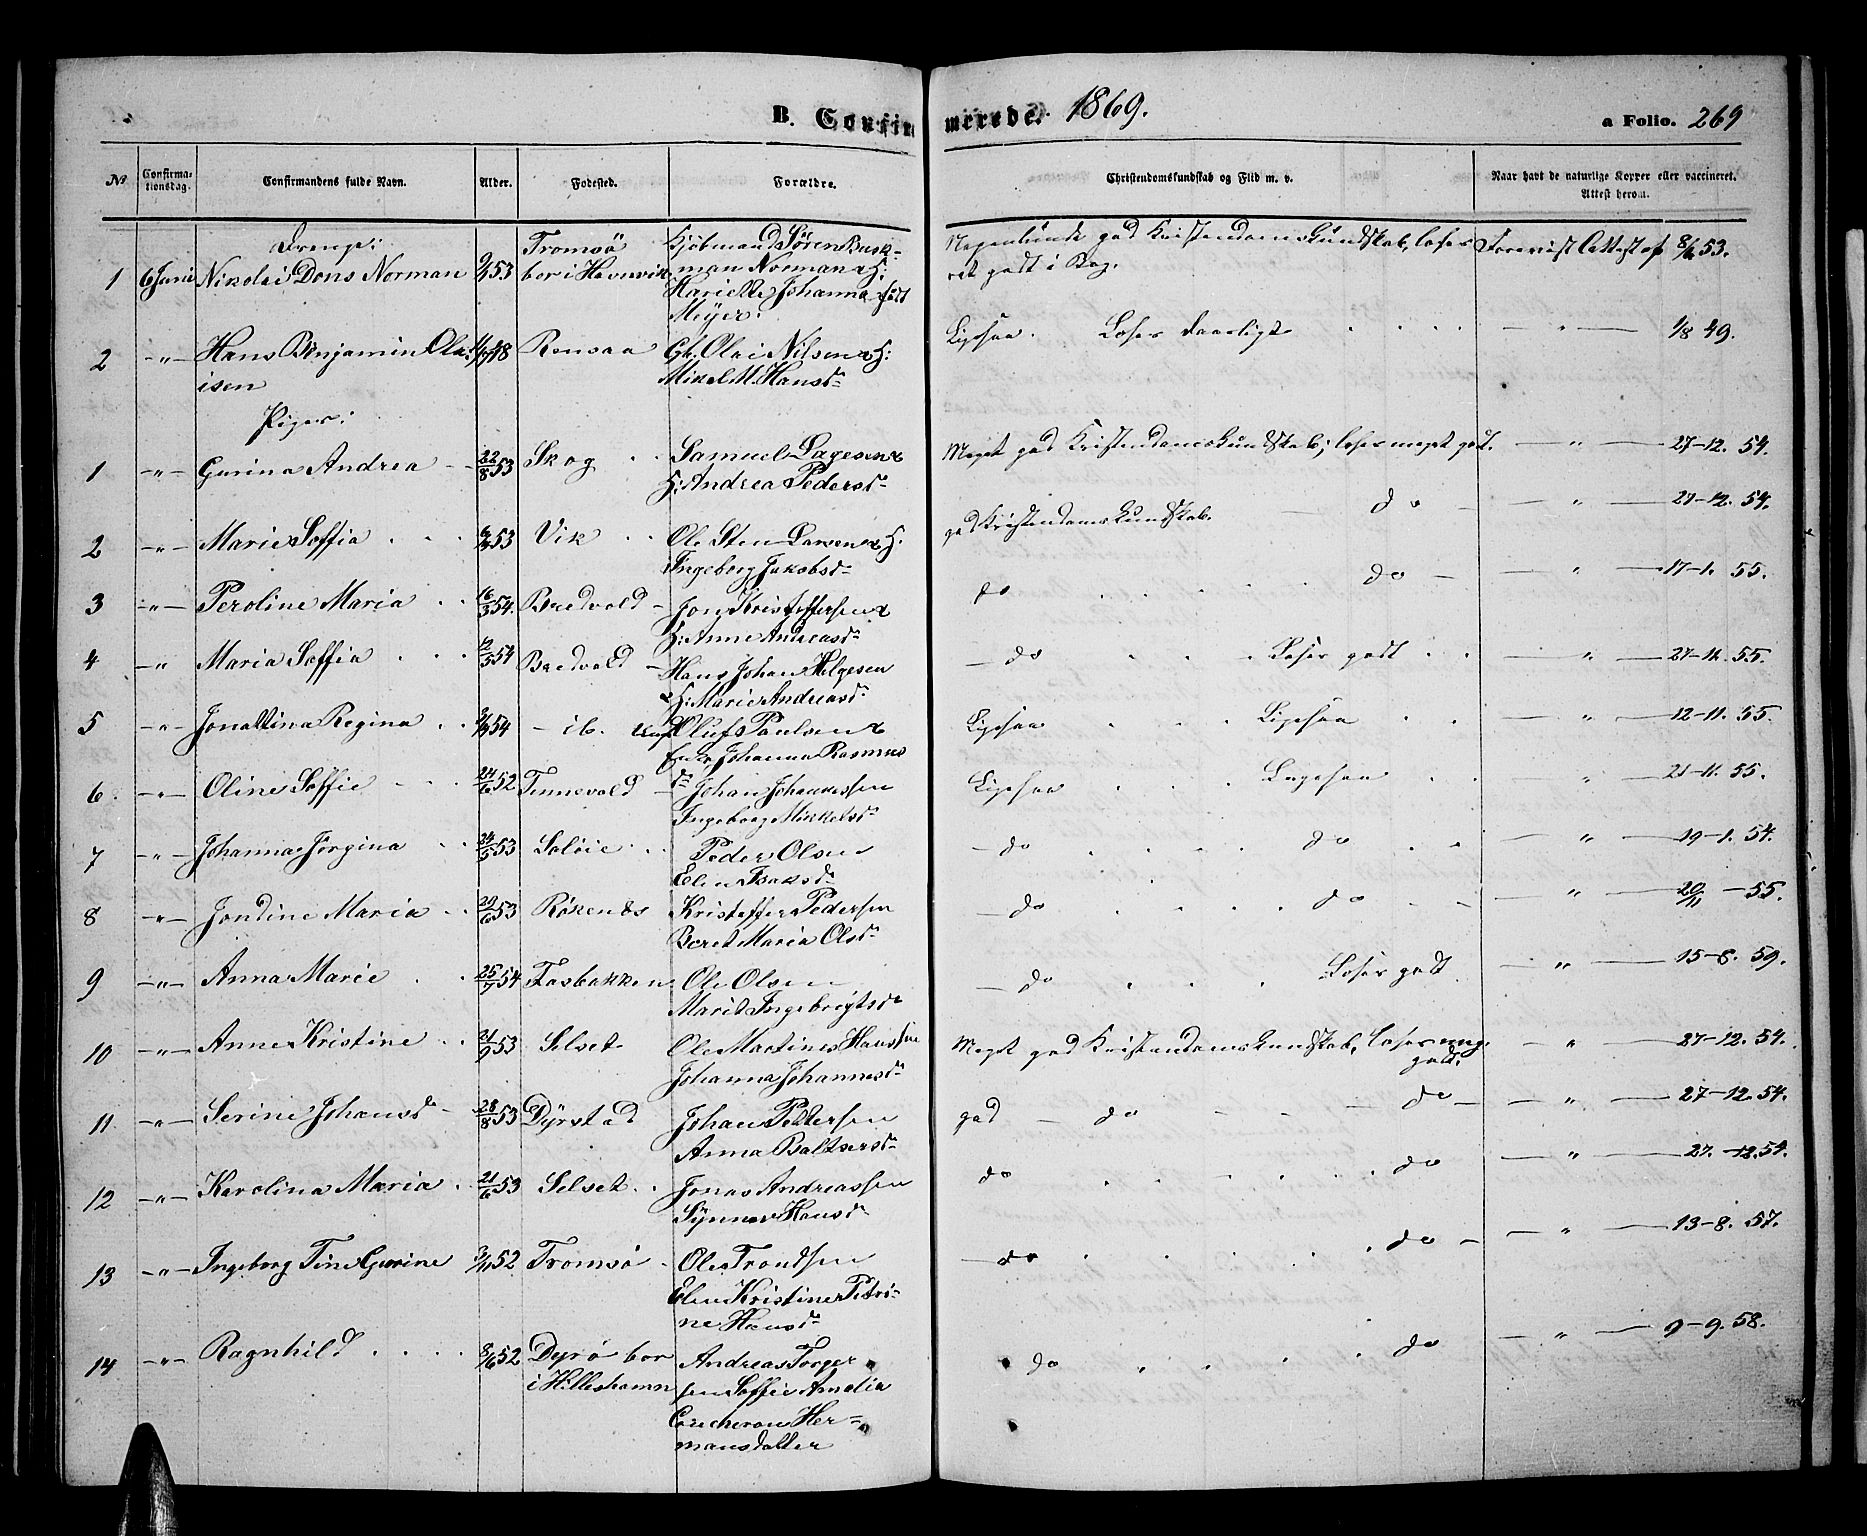 B. Confirmerede. 1869.
a Folio. 269
No. Confirmationsdag. Confirmandens fulde Navn. Alder. Fødested. Forældre. Christendomskundskab og Flid m. v. Naar havt de naturlige Kopper eller vaccineret. Attest herom.
Drenge:
1 6 Juni Nikolai Dons Norman 53 Tromsö bor i Havnvik Kjöbmand Sören Buskman Norman & H: Johanna født Meyer. god Kristendomskundskab, læser ret godt i Bog. Forevist Attest af 8/6 53.
2 -"- Hans Benjamin Olaisen 48 Rensaa Olai Nilsen & H: Mikel M. Hansd. Ligesaa. Læser daarligt -"- 1/8 49.
Piger:
1 -"- Gurina Andrea 22/8 53 Skog Samuel Lagesen & H: Andrea Pedersd. Meget god Kristendomskundskab; læser meget godt. -"- 27-12. 54.
2 -"- Marie Soffia 53 Vik Ole Sten Larsen & H: Ingeborg Jakobsd. god Kristendomskundskab. do -"- 27-12. 54.
3 -"- Peroline Maria 16/3 54. Bredvold Jon Kristoffersen & H: Anne Andreasd. do do -"- 17-1. 55.
4 -"- Maria Soffia 54 Bredvold Hans Johan Helgesen & H: Marie Andreasd. do Læser godt -"- 27-11. 55.
5 -"- Jonettina Regina 54 - ib. Oluf Paulsen & Johanna Rasmusd. Ligesaa Ligesaa -"- 12-11. 55.
6 -"- Oline Soffie 24/6 52 Tennevold Johan Johannessen Ingeborg Mikkelsd. Ligesaa Ligesaa " 21-11. 55.
7 -"- Johanna Jörgina 24/5 53 Salöie Peder Olsen Elen Isaksd. do do -"- 19-1. 54.
8 -"- Jondine Maria 29/6 53 Rökenes Kristoffer Pedersen Beret Maria Olsd. do do -"- 20/11 - 55.
9 -"- Anna Marie 25/7 54 Fosbakken Ole Olsen Marit Ingebrigtsd. do Læser godt -"- 15-8. 59.
10 -"- Anne Kristine 21/9 53 Selset Ole Martines Hansen Johanna Johannesd. Meget god Kristendomskundskab, læser meg. godt. -"- 27-12. 54.
11 -"- Serine Johansd. 28/8 53 Dyrstad Johan Pettersen Anna Baltsersd. god do do -"- 27-12. 54.
12 -"- Karolina Maria 21/6 53 Selset Jonas Andreassen Synnev Hansd. do do -"- 27.-12. 54.
13 -"- Ingeborg Tine Gurine 52 Tromsö Ole Trondsen Elen Kristine Petrine Hansd. do do -"- 13-8. 57.
14 -"- Ragnhild 8/6 52 Dyrö bor i Hilleshamn Andreas Torgersen Soffie Amalia Coucheron Hermansdatter do do -"- 9-9. 58.